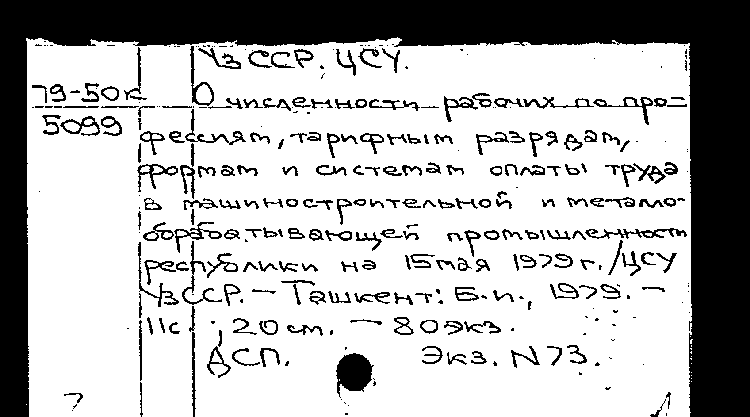 УзССР. ЦСУ.
79-50к О численности рабочих по про-
5099 фессиям, тарифным разрядам,
формам и системам оплаты труда
в машиностроительной и металло-
обрабатывающей промышленности
республики на 15 мая 1979 г. / ЦСУ
УзССР. — Ташкент: Б.и., 1979. —
11с., 20 см. — 80 экз.
ДСП. Экз. N 73.